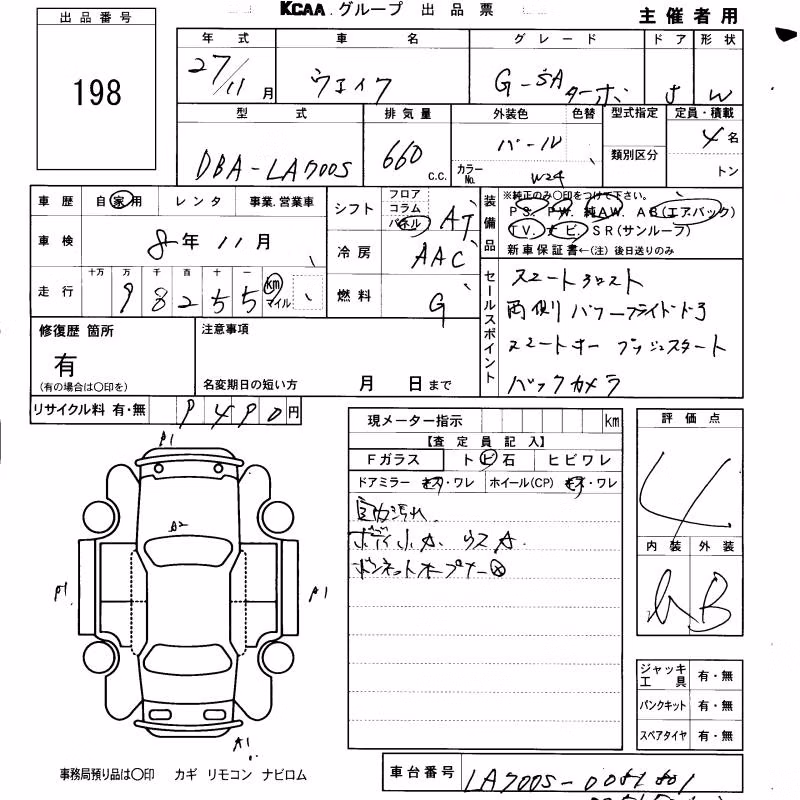 出品番号
198
KCAA.グループ 出品票
主催者用
年式 車名 グレード ドア 形状
27/11月 ウェイク G-SAターボ 5 W
型式 排気量 外装色 色替 型式指定 定員・積載
DBA-LA700S 660 C.C. パール 類別区分 4名
カラーNo. W24 トン
車歴 自家用 レンタ 事業.営業車
車検 8年11月
走行 十万 万 千 百 十 一 km マイル
98255
シフト フロア コラム パネル AT
冷房 AAC
燃料 G
装備品 ※純正のみ〇印をつけて下さい。
PS. PW. 純AW. AB(エアバック)
TV. ナビ. SR(サンルーフ)
新車保証書←(注)後日送りのみ
セールスポイント
スマートアシスト
両側パワースライドドア
スマートキー プッシュスタート
バックカメラ
修復歴 箇所
有
(有の場合は〇印を)
注意事項
名変期日の短い方 月 日まで
リサイクル料 有・無 9490円
現メーター指示 km
【査定員記入】
Fガラス トビ石 ヒビワレ
ドアミラー キズ・ワレ ホイール(CP) キズ・ワレ
室内汚れ
ボディ小A. ウスA.
ボンネットオープナー
評価点
4
内装 外装
B
ジャッキ工具 有・無
パンクキット 有・無
スペアタイヤ 有・無
A1
A2
A1
A1
事務局預り品は〇印 カギ リモコン ナビロム
車台番号 LA700S-